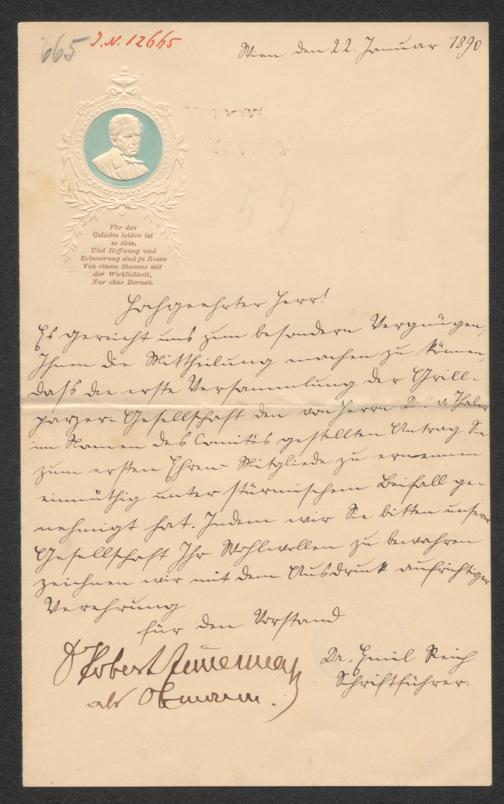 665 J.N. 12665
Wien den 22. Januar 1890
Für das
Geliebte leiden ist
so süss,
Und Hoffnung und
Erinnerung sind ja Rosen
Von einem Stamme mit
der Wirklichkeit,
Nur ohne Dornen.
55
Hochgeehrter Herr!
Es gereicht uns zum besondern Vergnügen,
Ihnen die Mittheilung machen zu können,
dass die erste Versammlung der Grill-
parzer-Gesellschaft den von Herrn Dr. v. Thaler
im Namen des Comités gestellten Antrag Sie
zum ersten Ehren-Mitgliede zu ernennen
einmüthig unter stürmischem Beifall ge-
nehmigt hat. Indem wir Sie bitten unserer
Gesellschaft Ihr Wohlwollen zu bewahren
zeichnen wir mit dem Ausdruck aufrichtiger
Verehrung
für den Vorstand
Dr Robert Zimmermann
als Obmann.
Dr. Emil Reich
Schriftführer.